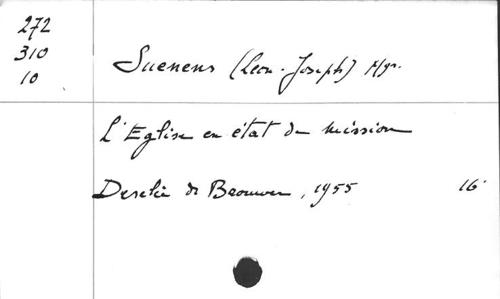 272
310
10
Suenens (Leon-Joseph) Mgr.
L'Eglise en état de mission
Desclée de Brouwer, 1955 16°